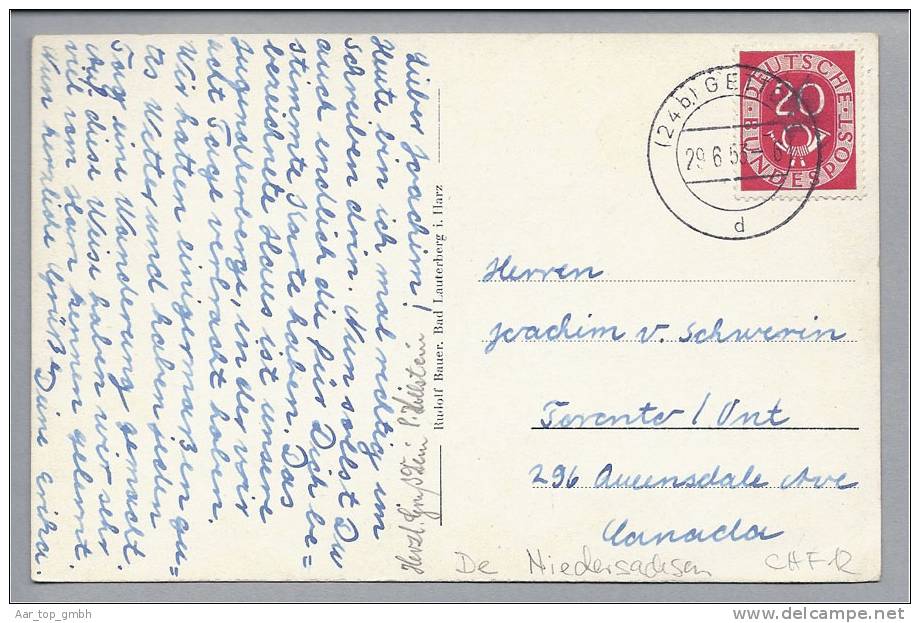 Lieber Joachim!
Heute bin ich mal richtig im
Schreiben drin. Nun sollst Du
auch endlich die für Dich be=
stimmte Karte haben. Das
bezeichnete Haus ist unsere
Jugendherberge, in der wir
acht Tage verbracht haben.
Wir hatten einigermaßen gu=
tes Wetter und haben jeden
Tag eine Wanderung gemacht.
Auf diese Weise haben wir sehr
viel vom Harz kennen gelernt.
Nun herzliche Grüße Deine Erika.
Herzl. Grüße Dein
Rudolf Bauer, Bad Lauterberg i. Harz
(24b)
29.6.53
d
DEUTSCHE BUNDESPOST
20
Herren
Joachim v. Schwerin
Toronto / Ont
296 Queensdale Ave
Canada
De Niedersachsen
CHF 12
Aar_top_gmbh
www.delcampe.net